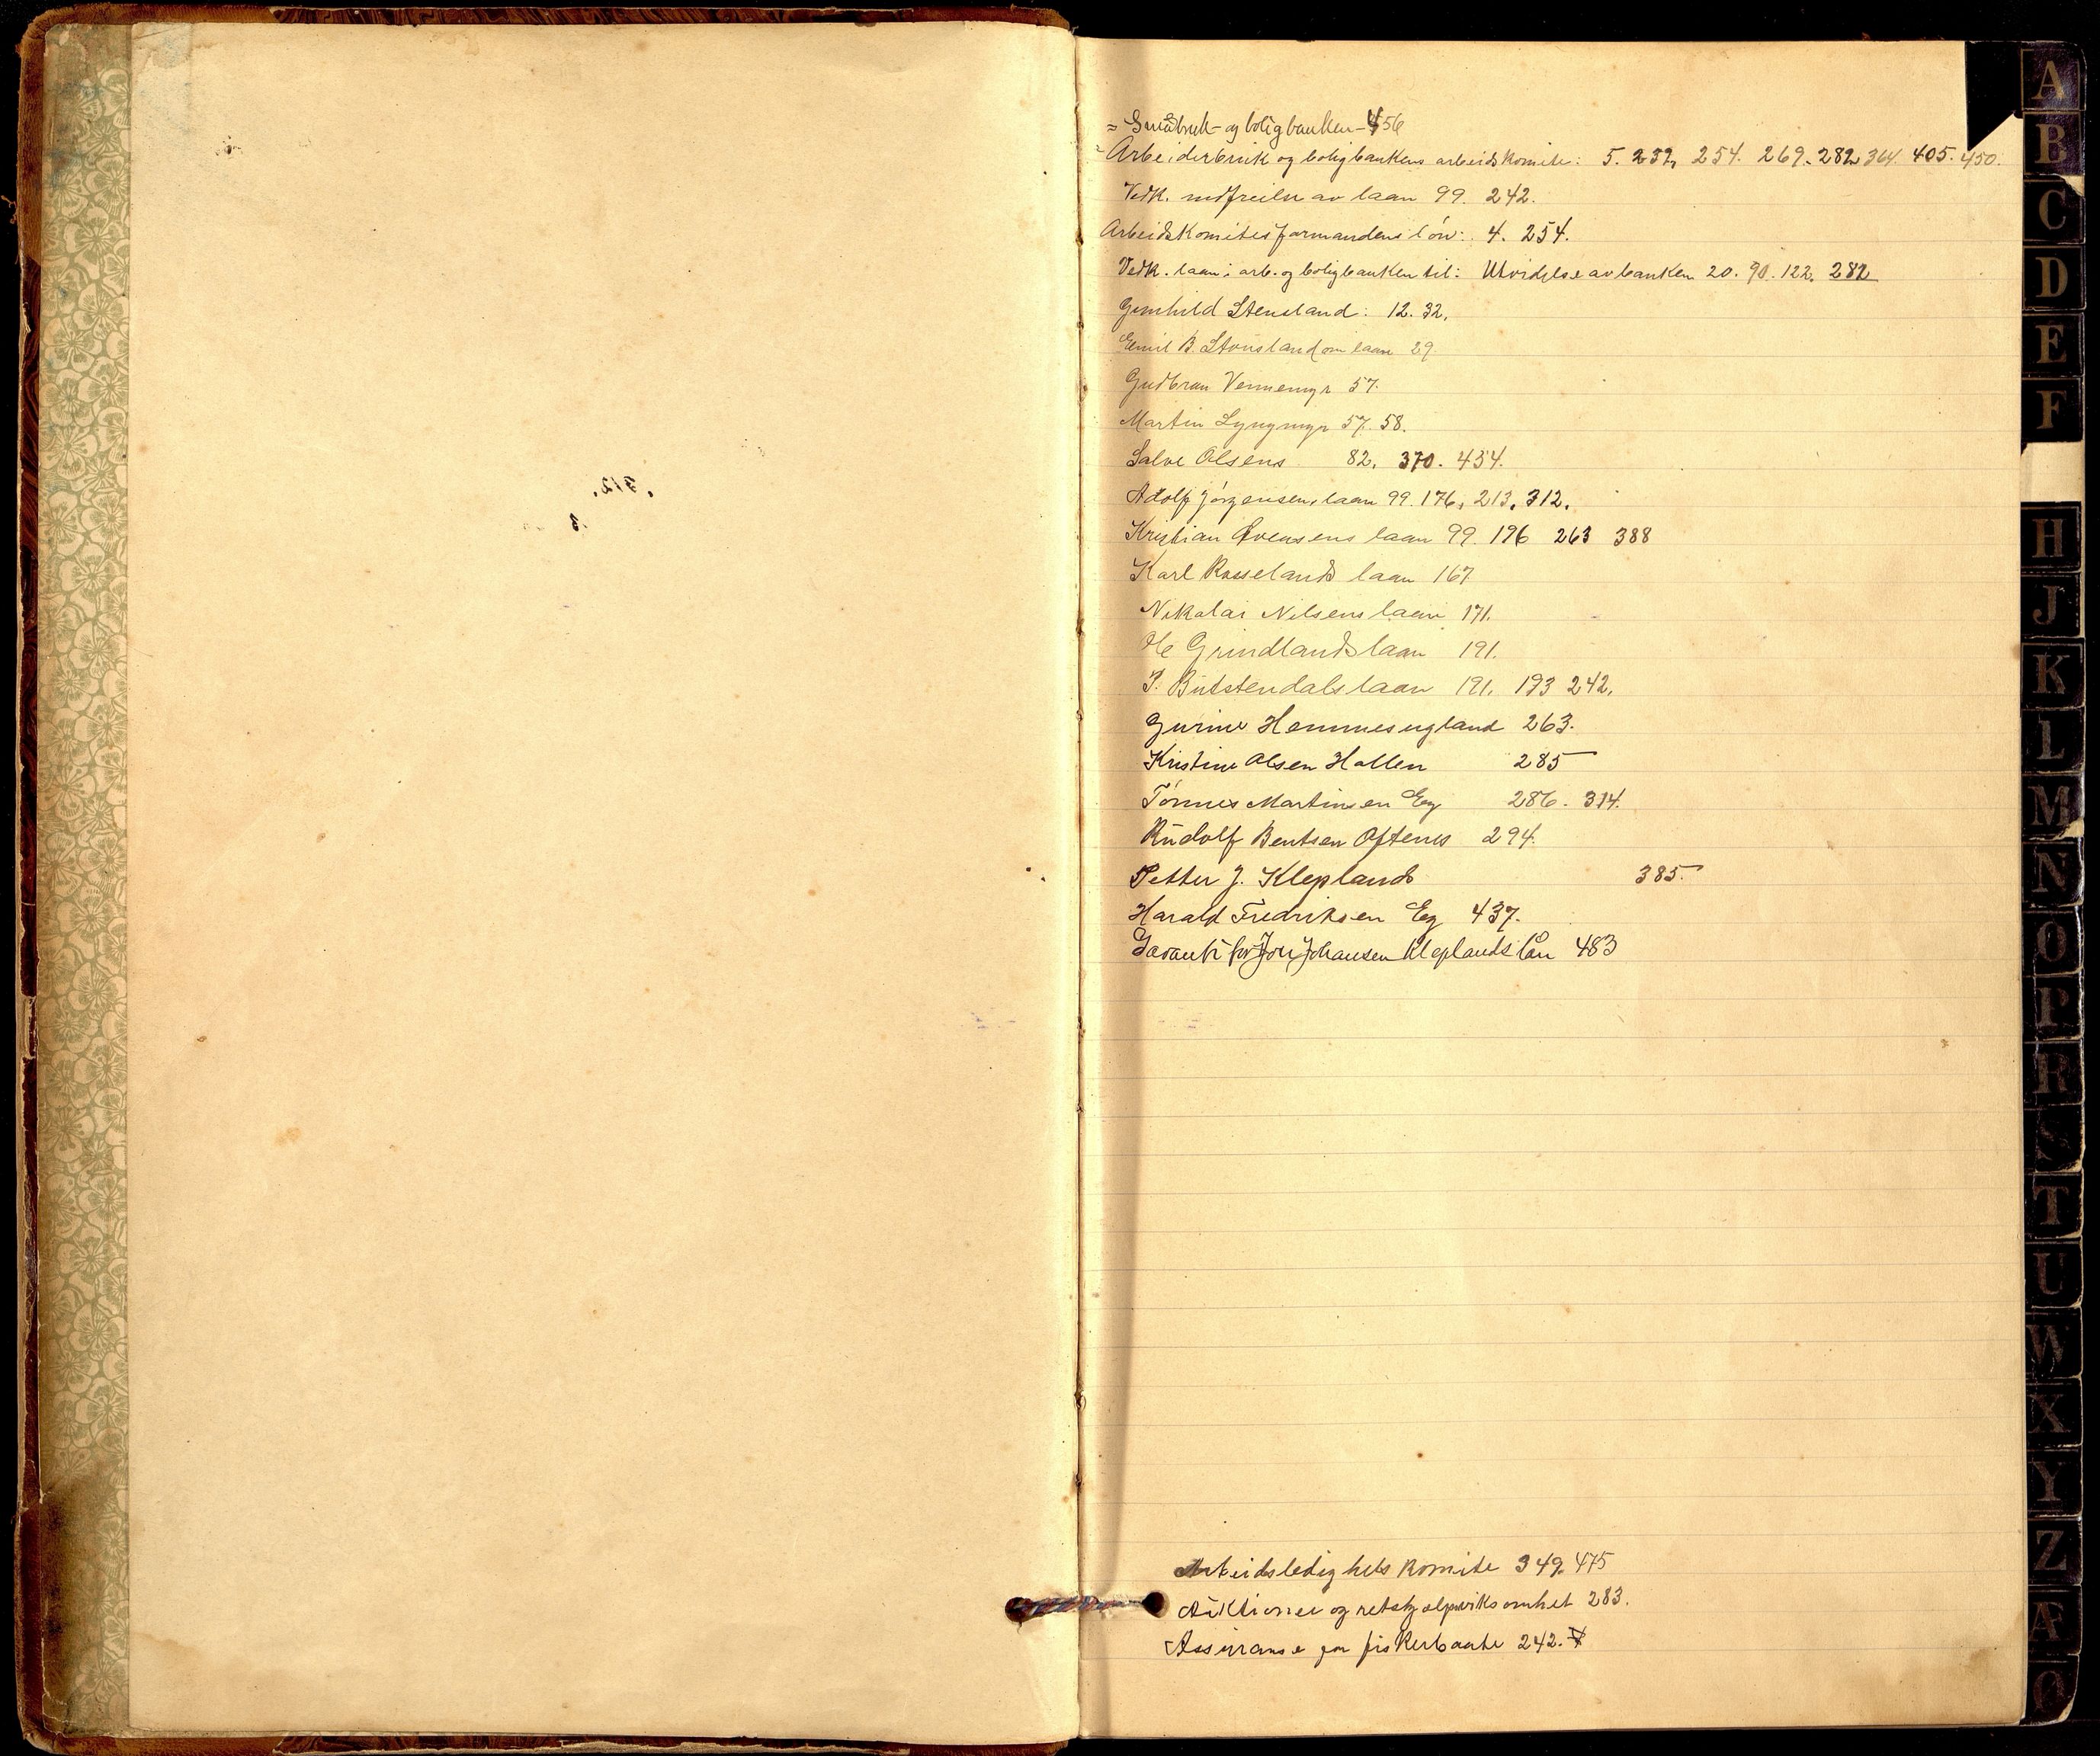 = Småbruk- og boligbanken - 456
- Arbeiderbruk og boligbankens arbeidskomite: 5. 252, 254. 269. 282 364 405. 450.
Vedk. indfrielse av laan 99. 242.
Arbeidskomites formandens lön: 4. 254.
Vedk. laan i arb. og boligbanken til: Utvidelse av banken 20. 90. 122. 282
Gunhild Stensland: 12. 32.
Emil B. Stensland om laan 29.
Gudbran Vennemyr 57.
Martin Lyngmyr 57. 58.
Salve Olsens 82. 370. 454.
Adolf Jörgensens laan 99. 176. 213. 312.
Kristian Svensens laan 99. 196 263 388
Karl Rosselands laan 167
Nikolai Nilsens laan 171.
Ole Grindlands laan 191.
P. Butstendals laan 191. 193 242.
Gurine Hemmesugland 263.
Kristine Olsen Hallen 285
Tönnes Martinsen Eeg 286. 314.
Rudolf Bentsen Oftenes 294.
Petter J. Kleplands 385.
Harald Fredriksen Eeg 437.
Garanti for Johansen Kleplands lån 483
Arbeidsledighets komite 349. 475
Auktioner og retshjelpsvirksomhet 283.
Assuranse paa fiskerbaate 242.
A
B
C
D
E
F
H
J
K
L
M
N
O
P
R
S
T
U
W
X
Y
Z
Æ
Ø